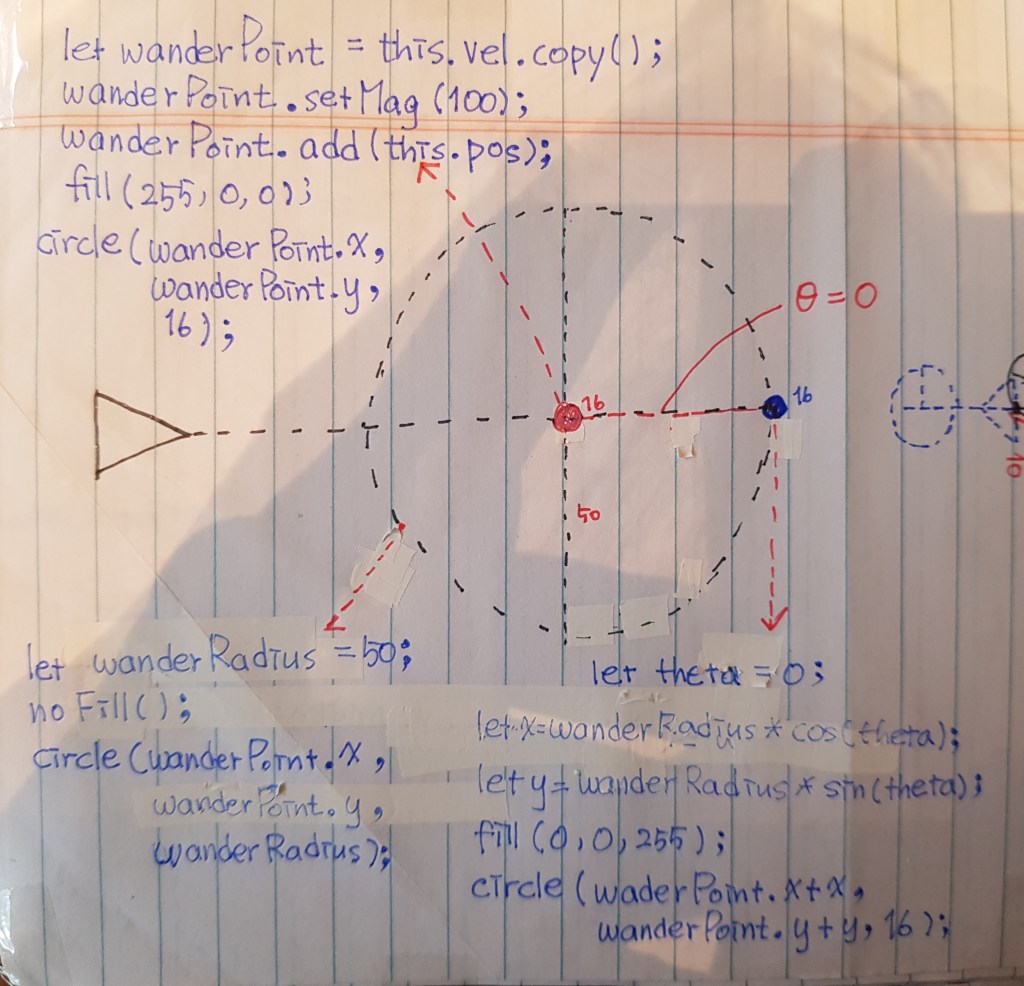 let wanderPoint = this.vel.copy();
wanderPoint.setMag (100);
wanderPoint. add (this.pos);
fill (255, 0, 0);
circle (wanderPoint.x,
wanderPoint.y,
16);
θ = 0
16
16
50
10
let wanderRadius = 50;
noFill();
circle (wanderPoint.x,
wanderPoint.y,
wanderRadius);
let theta = 0;
let x=wanderRadius * cos(theta);
let y= wanderRadius * sin(theta);
fill (0, 0, 255);
circle (waderPoint.x+x,
wanderPoint.y+y, 16);